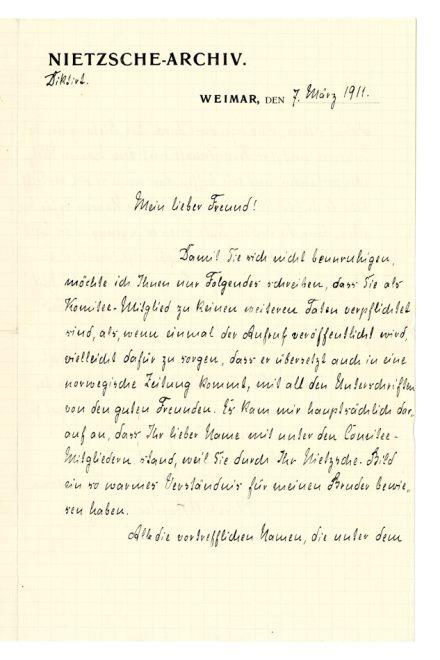 NIETZSCHE-ARCHIV.
Diktirt.
WEIMAR, DEN 7. März 1911.
Mein lieber Freund!
Damit Sie sich nicht beunruhigen,
möchte ich Ihnen nur Folgendes schreiben, dass Sie als
Komitee-Mitglied zu keinen weiteren Taten verpflichtet
sind, als, wenn einmal der Aufruf veröffentlicht wird,
vielleicht dafür zu sorgen, dass er übersetzt auch in eine
norwegische Zeitung kommt, mit all den Unterschriften
von den guten Freunden. Es kam mir hauptsächlich dar-
auf an, dass Ihr lieber Name mit unter den Comitee-
Mitgliedern stand, weil Sie durch Ihr Nietzsche-Bild
ein so warmes Verständnis für meinen Bruder bewie-
sen haben.
Alle die vortrefflichen Namen, die unter dem